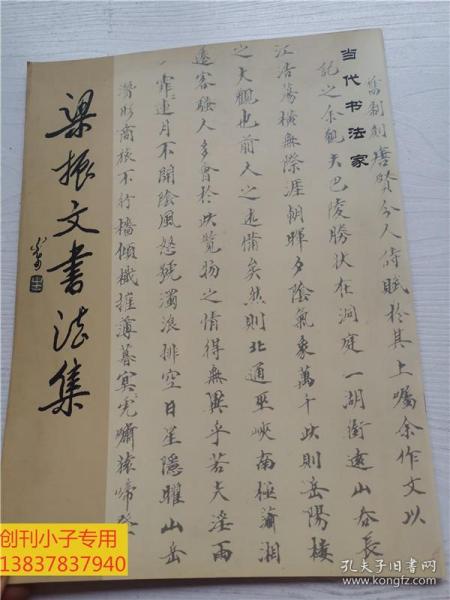 当代书法家
梁振文書法集
舊制刻唐賢今人詩賦於其上囑余作文以
記之余觀夫巴陵勝狀在洞庭一湖銜遠山吞長
江浩蕩橫無際涯朝暉夕陰氣象萬千此則岳陽樓
之大觀也前人之述備矣然則北通巫峽南極瀟湘
遷客騷人多會於此覽物之情得無異乎若夫淫雨
霏連月不開陰風怒號濁浪排空日星隱曜山岳
潛形商旅不行檣傾楫摧薄暮冥冥虎嘯猿啼登
创刊小子专用
13837837940
孔夫子旧书网
www.kongfz.com